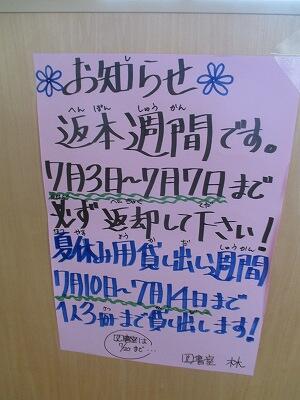 お知らせ
へんぽん しゅうかん
返本週間です。
7月3日~7月7日まで
必ず返却して下さい!
夏休み用貸し出し週間
7月10日~7月14日まで
1人3冊まで貸し出します!
図書室は
7/20まで…
図書室 林